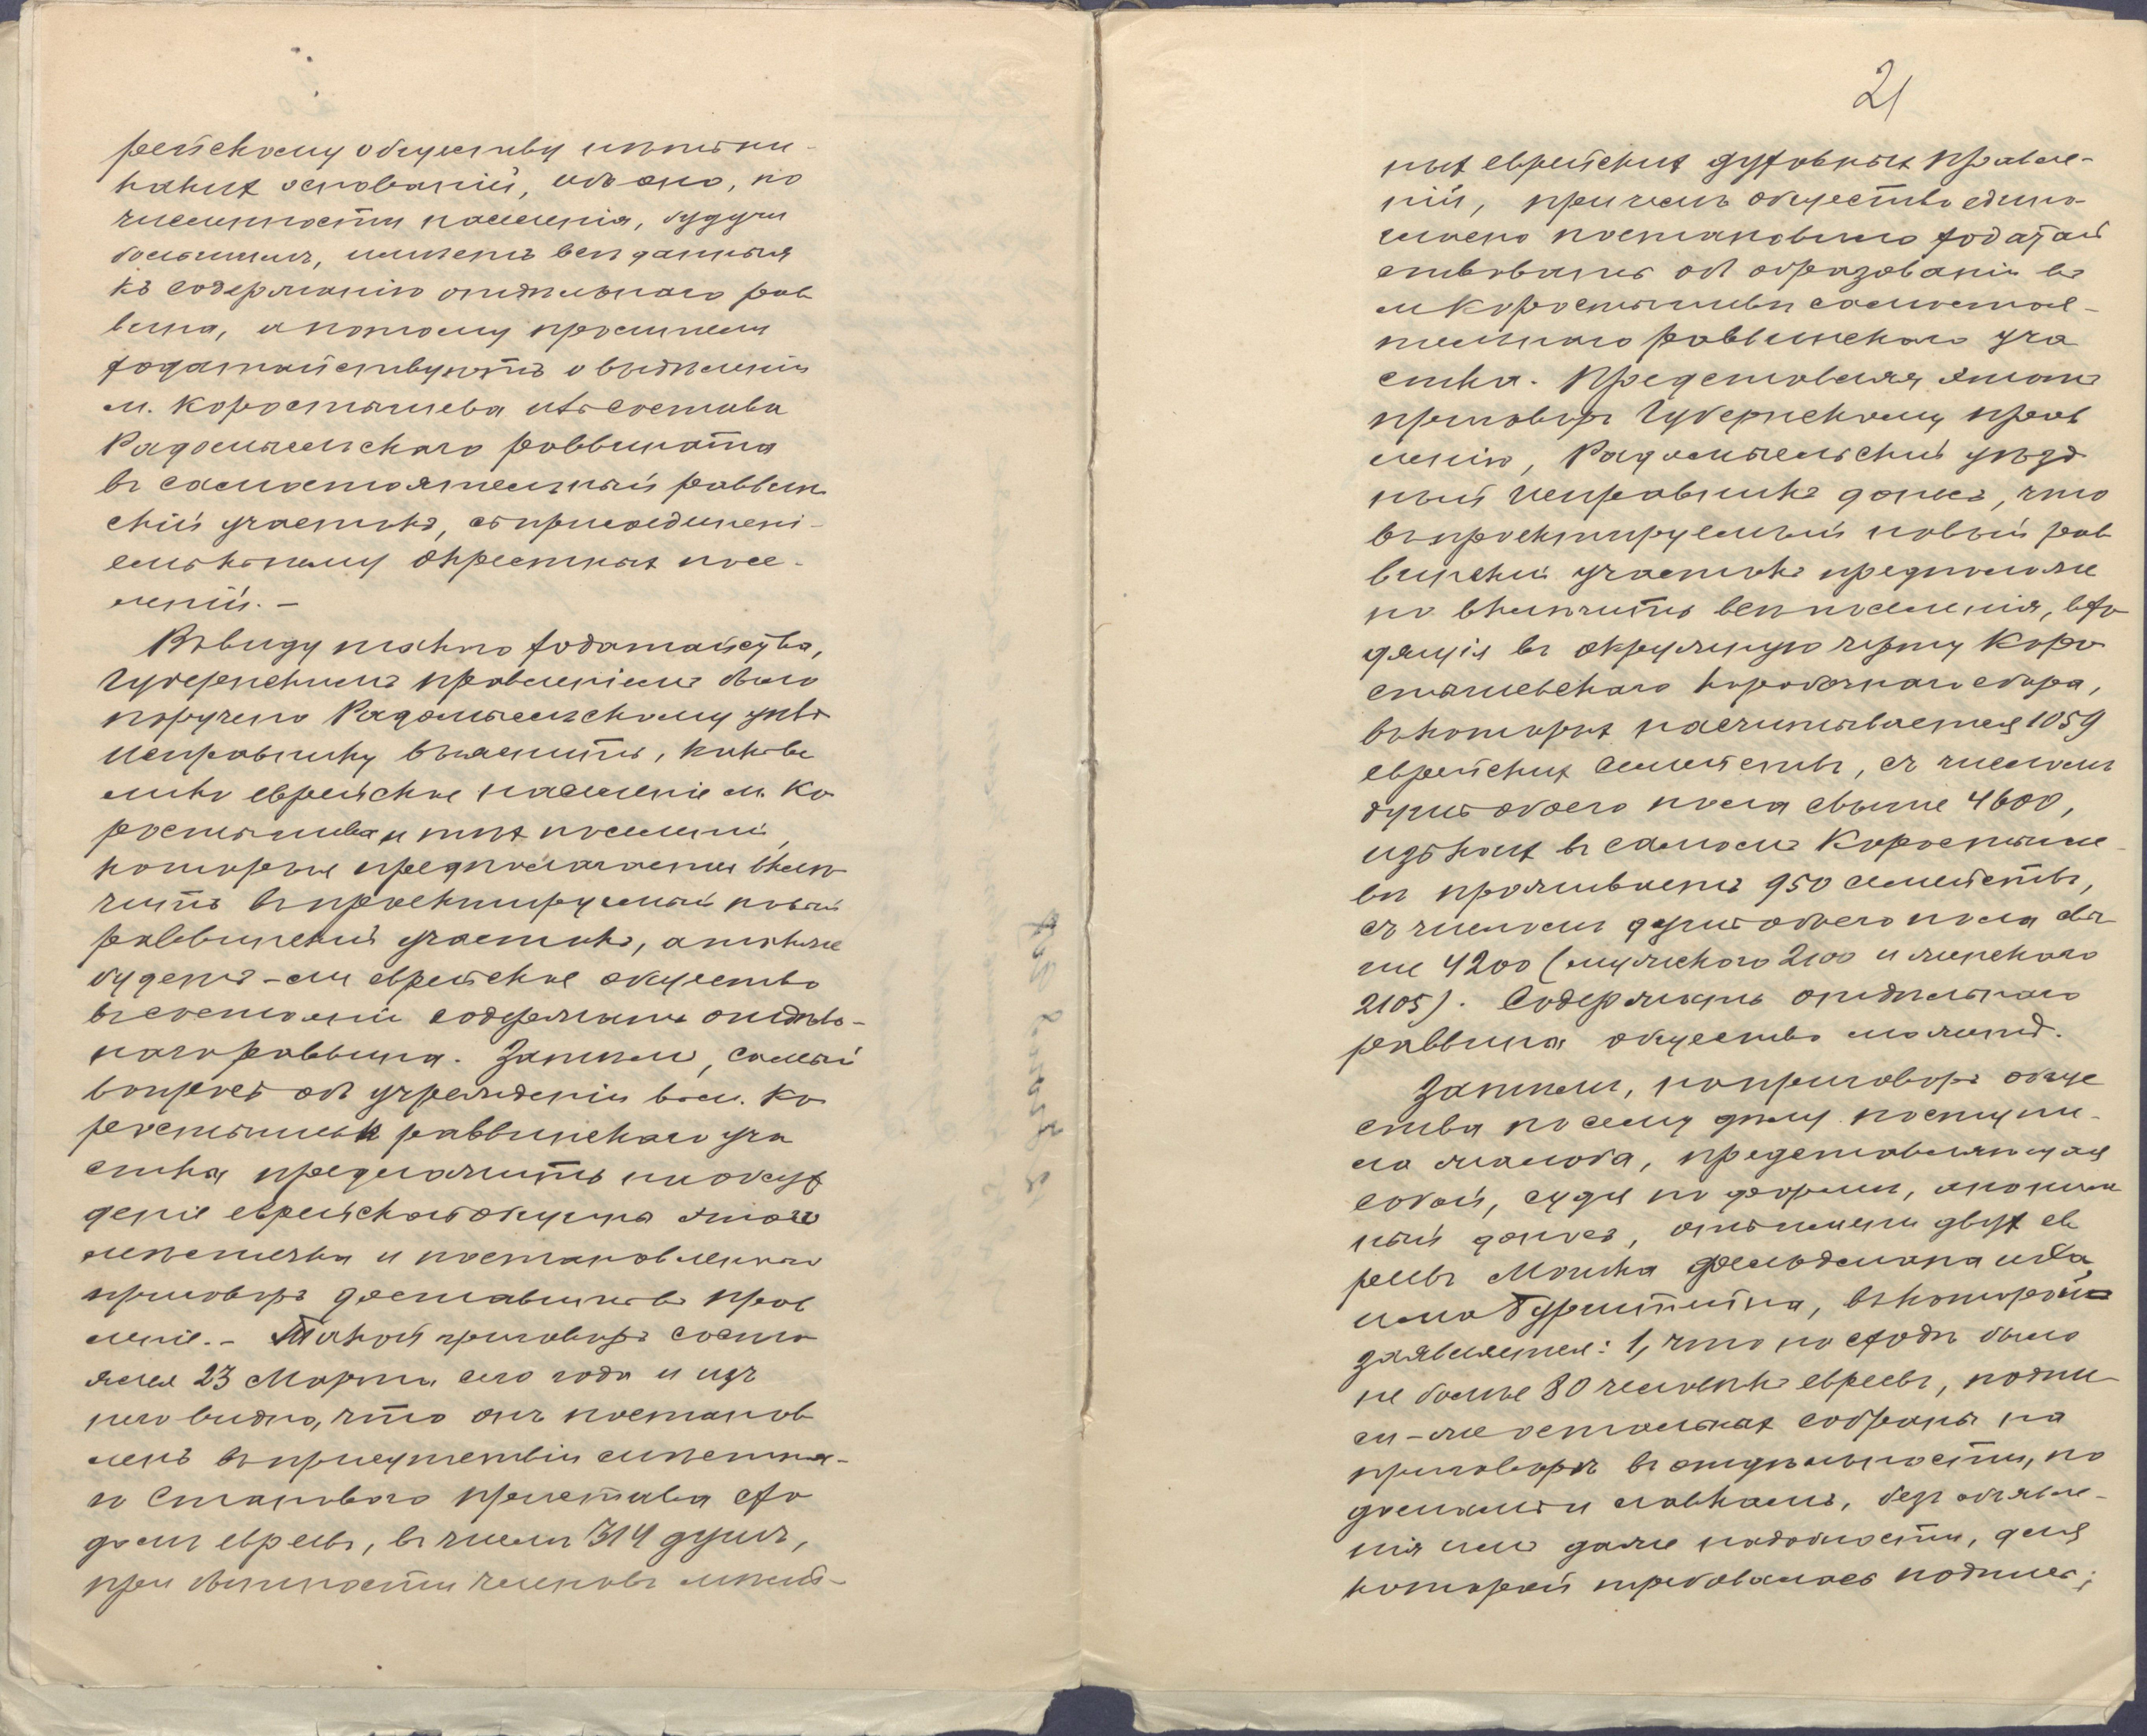 рейскому обществу нѣтъ ни-
какихъ основаній, ибо оно, по
численности населенія, будучи
большимъ, имѣетъ всѣ данныя
къ содержанію отдѣльнаго рав
вина, а потому просители
ходатайствуютъ о выдѣленіи
м. Коростышева изъ состава
Радомысльскаго раввината
въ самостоятельный раввин
скій участокъ, съ присоединені-
емъ къ нему окрестныхъ посе-
леній. –
Въ виду такого ходатайства,
Губернскимъ правленіемъ было
поручено Радомысльскому уѣзд
Исправнику выяснить, какъ ве
лико еврейское населеніе м. Ко
ростышева и тѣхъ поселеній,
которыя предполагается вклю
чить въ проектируемый новый
раввинскій участокъ, а также
будетъ-ли еврейское общество
въ состояніи содержать отдѣль-
наго раввина. Затѣмъ, самый
вопросъ объ учрежденіи въ м. Ко
ростышевѣ раввинскаго уча
стка предложить на обсуж
деніе еврейскаго общества этого
мѣстечка и постановленный
приговоръ доставить въ прав
леніе. – Такой приговоръ состо
ялся 23 Марта сего года и изъ
него видно, что онъ постанов
ленъ въ присутствіи мѣстна-
го Становаго пристава схо
домъ евреевъ, въ числѣ 314 душъ,
при бытности членовъ мѣст-
21
ныхъ еврейскихъ духовныхъ правле-
ній, причемъ общество едино-
гласно постановило ходатай
ствовать объ образованіи въ
м Коростышевѣ самостоя-
тельнаго раввинскаго уча
стка. Представляя этотъ
приговоръ Губернскому прав
ленію, Радомысльскій уѣзд
ный Исправникъ донесъ, что
въ проектируемый новый рав
винскій участокъ предположе
но включить всѣ поселенія, вхо
дящія въ окружную черту Коро
стышевскаго коробочнаго сбора,
въ которыхъ насчитывается 1059
еврейскихъ семействъ, съ числомъ
душъ обоего пола свыше 4600,
изъ коихъ въ самомъ Коростыше-
вѣ проживаетъ 950 семействъ,
съ числомъ душъ обоего пола свы
ше 4200 (мужскаго 2100 и женскаго
2105). Содержать отдѣльнаго
раввина общество можетъ.
Затѣмъ, на приговоръ обще
ства по сему дѣлу поступи-
ла жалоба, представляющая
собой, судя по формѣ, аноним
ный доносъ, отъ имени двухъ ев
реевъ Мошка Фельдмана и
Бурштейна, въ которой
заявляется: 1, что на сходѣ было
не болѣе 80 человѣкъ евреевъ, подпи
си-же остальныхъ собраны на
приговорѣ въ отдѣльности, по
домамъ и лавкамъ, безъ объявле-
нія имъ даже надобности, для
которой требовалась подпись;